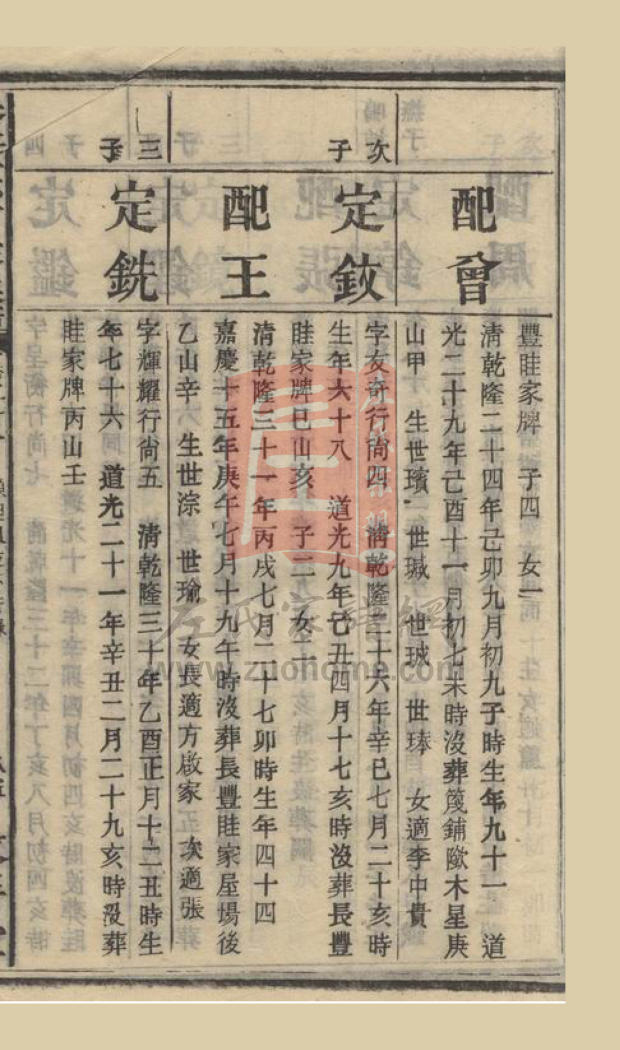 豐畦家牌　子四　女一
配曾
清乾隆二十四年己卯九月初九子時生年九十一　道
光二十九年己酉十一月初七未時沒葬篾鋪歘木星庚
山甲　生世璸　世瑊　世珹　世琫　女適李中貴
次子
定鈘
字友奇行尙四　清乾隆二十六年辛巳七月二十亥時
生年六十八　道光九年己丑四月十七亥時沒葬長豐
畦家牌巳山亥　子二　女二
配王
清乾隆三十一年丙戌七月二十七卯時生年四十四
嘉慶十五年庚午七月十九午時沒葬長豐畦家屋場後
乙山辛　生世淙　世瑜　女長適方啟家　次適張
三子
定銑
字輝耀行尙五　清乾隆三十年乙酉正月十二丑時生
年七十六　道光二十一年辛丑二月二十九亥時沒葬
畦家牌丙山壬
左氏家譜網
www.zuohome.com